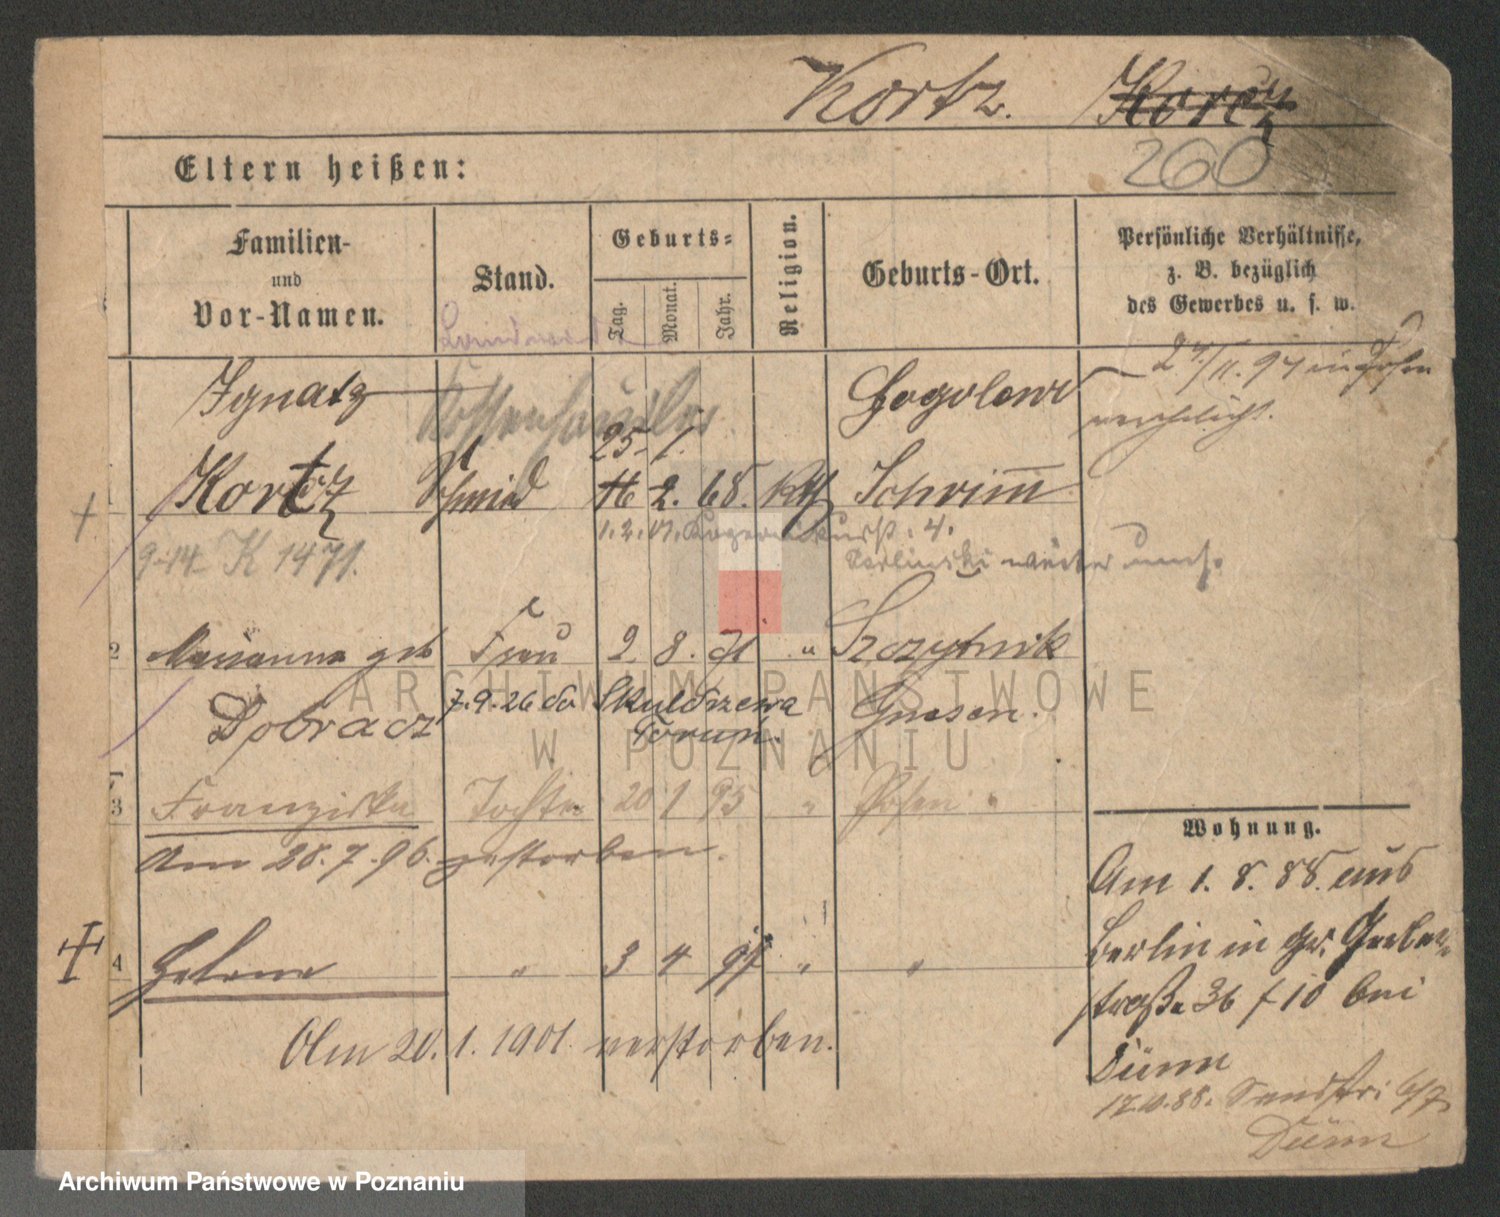 Kortz. Korcz
260
Eltern heißen:
Familien- und Vor-Namen.
Stand.
Geburts-
Tag.
Monat.
Jahr.
Religion.
Geburts-Ort.
Persönliche Verhältnisse, z. B. bezüglich des Gewerbes u. s. w.
Ignatz
Gogolewo
25. 1.
Kortz Schmied 16 2. 68. Kth Schrimm
9.14 K 1471.
1. 2. 01.
2 Marianna geb Frau 2 8. 71 " Szczytnik
Dobracz 7.9.26 do Skuldrzewa Gnesen.
Toruń.
3 Franziska Tochter 20 1 95 " Posen
Am 28.7.96. gestorben.
4 Helene " 3 4 97 " "
Am 20. 1. 1901. verstorben.
Wohnung.
Am 1. 8. 88. aus
Berlin in gr. Gerber
straße 36 bei
Dünn
17.10.88.
Dünn
ARCHIWUM PAŃSTWOWE
W POZNANIU
Archiwum Państwowe w Poznaniu